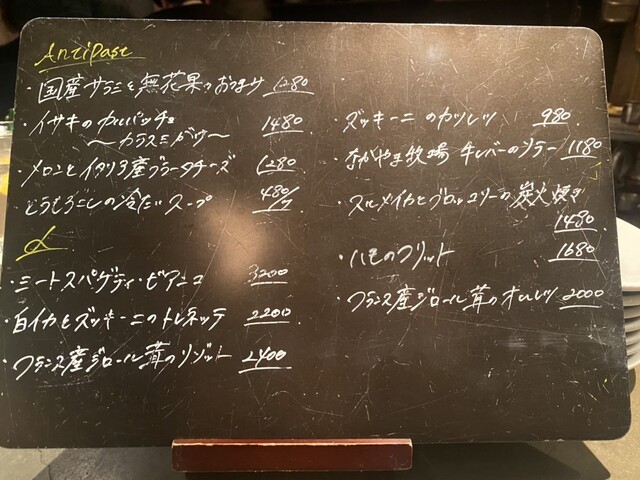 Antipast
・国産サラミと無花果のおつまみ 1280
・イサキのカルパッチョ 1480
〜カラスミがけ〜
・メロンとイタリア産ブラータチーズ 1280
・とうもろこしの冷たいスープ 480/
・ミートスパゲティ・ビアンコ 3200
・白イカとズッキーニのトレネッテ 2200
・フランス産ジロール茸のリゾット 2400
・ズッキーニのカツレツ 980
・ながやま牧場 牛レバーのソテー 1180
・スルメイカとブロッコリーの炭火焼き
1480
・ハモのフリット 1680
・フランス産ジロール茸のオムレツ 2000